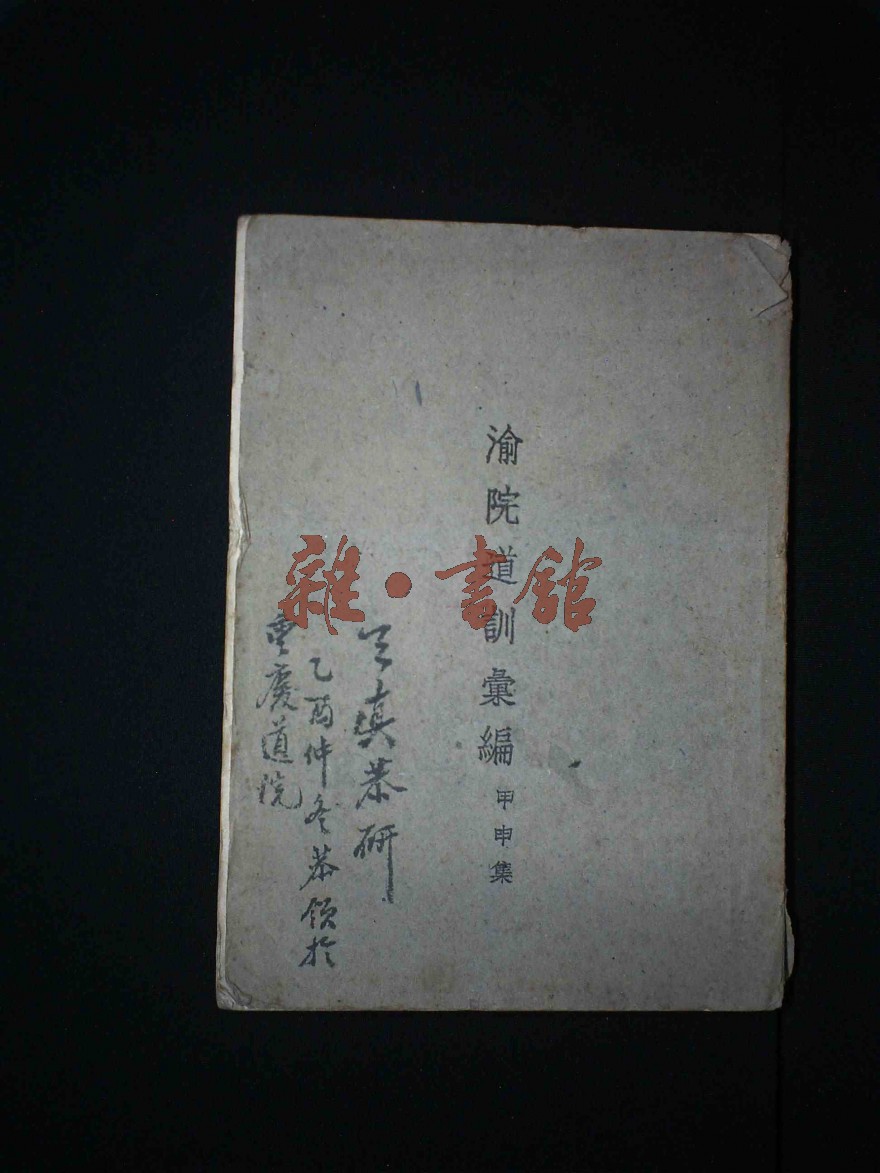 渝院道訓彙編 甲申集
真恭研
乙酉仲冬恭領於
重慶道院
雜·書館